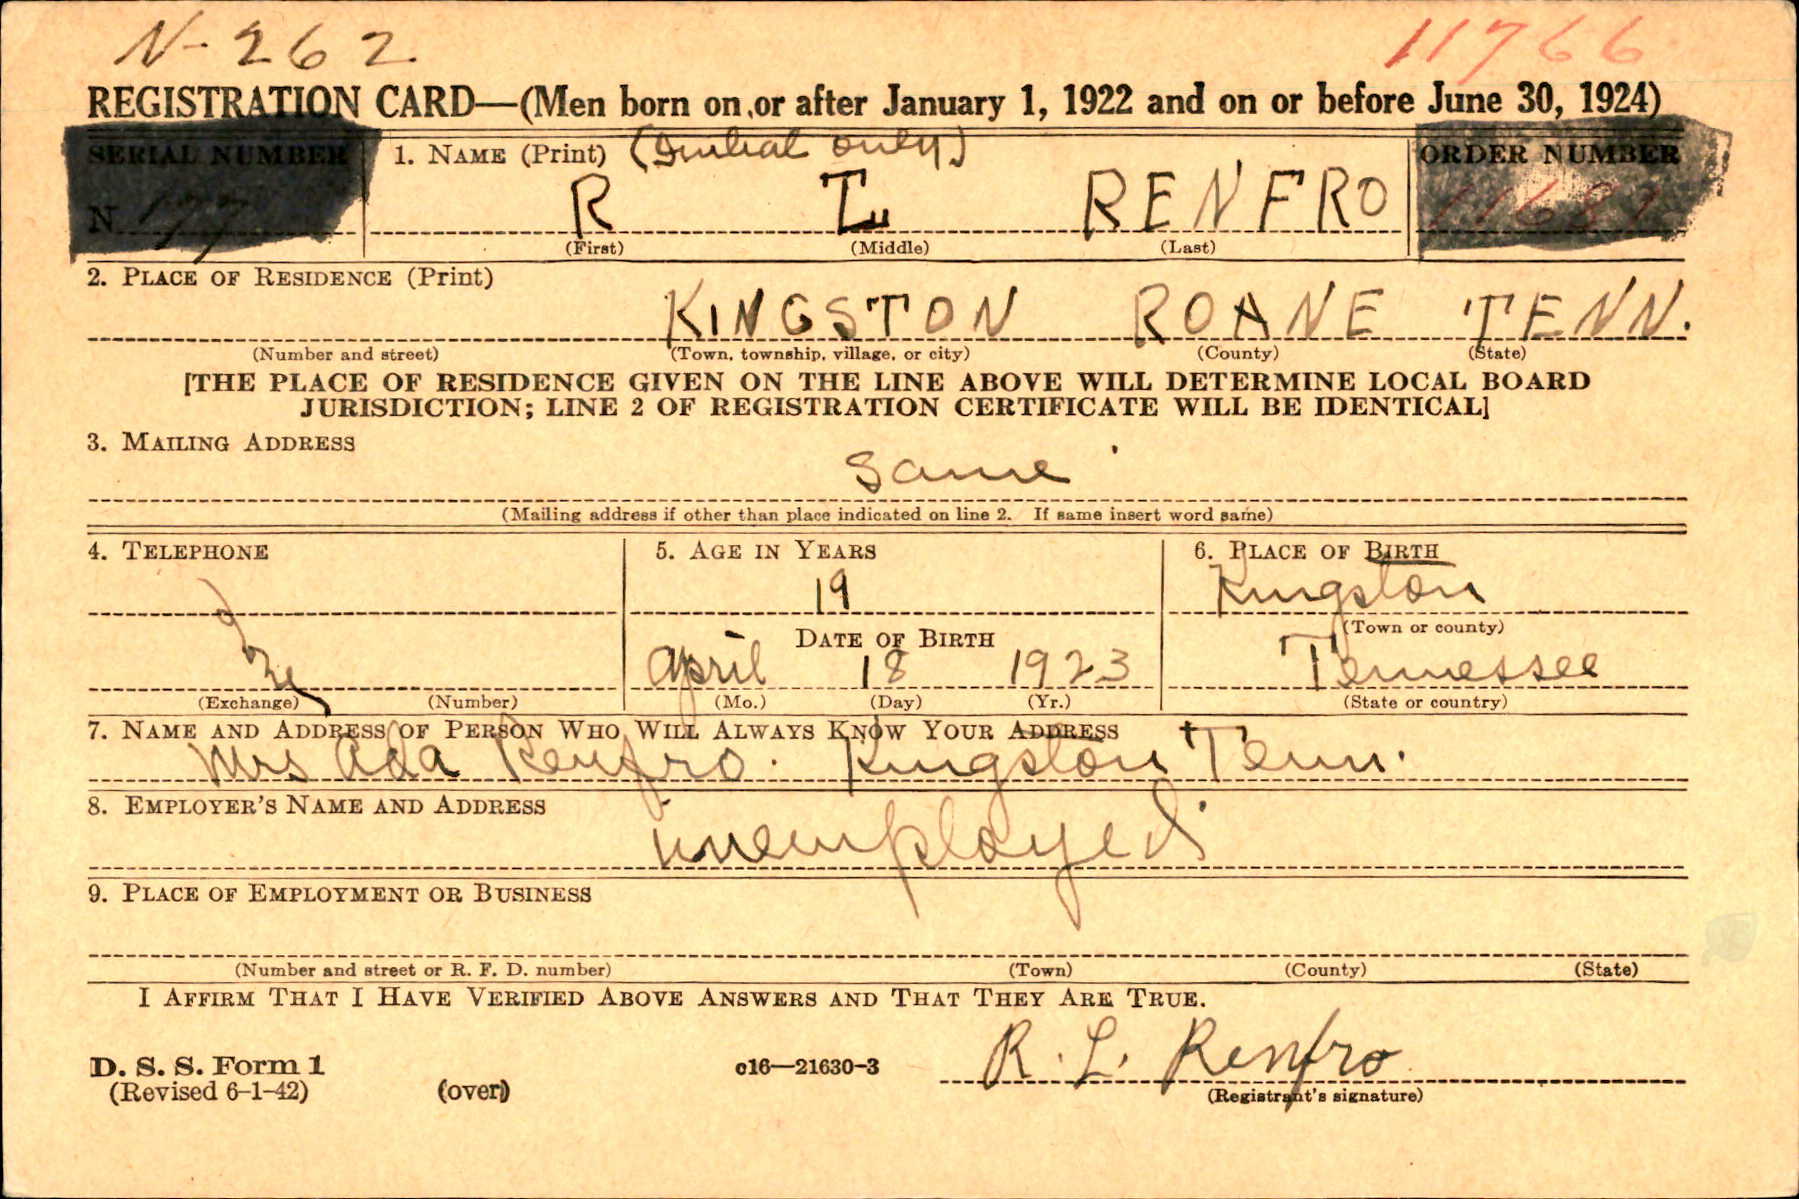 N-262 11766
REGISTRATION CARD—(Men born on or after January 1, 1922 and on or before June 30, 1924)
SERIAL NUMBER 1. NAME (Print) (Initial only) ORDER NUMBER
N 177 R L RENFRO
(First) (Middle) (Last)
2. PLACE OF RESIDENCE (Print)
KINGSTON ROANE TENN.
(Number and street) (Town, township, village, or city) (County) (State)
[THE PLACE OF RESIDENCE GIVEN ON THE LINE ABOVE WILL DETERMINE LOCAL BOARD
JURISDICTION; LINE 2 OF REGISTRATION CERTIFICATE WILL BE IDENTICAL]
3. MAILING ADDRESS
Same
(Mailing address if other than place indicated on line 2. If same insert word same)
4. TELEPHONE 5. AGE IN YEARS 6. PLACE OF BIRTH
19 Kingston
DATE OF BIRTH (Town or county)
April 18 1923 Tennessee
(Exchange) (Number) (Mo.) (Day) (Yr.) (State or country)
7. NAME AND ADDRESS OF PERSON WHO WILL ALWAYS KNOW YOUR ADDRESS
Mrs Ada Renfro. Kingston Tenn.
8. EMPLOYER'S NAME AND ADDRESS
unemployed
9. PLACE OF EMPLOYMENT OR BUSINESS
(Number and street or R. F. D. number) (Town) (County) (State)
I AFFIRM THAT I HAVE VERIFIED ABOVE ANSWERS AND THAT THEY ARE TRUE.
R. L. Renfro
D. S. S. Form 1 c16—21630-3
(Revised 6-1-42) (over) (Registrant's signature)